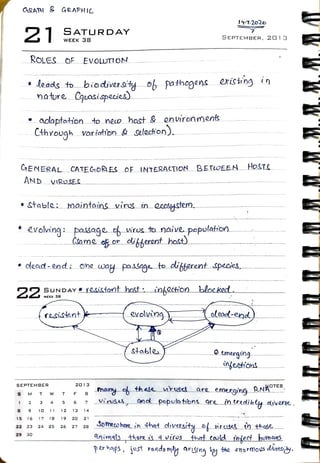 GRATH & GRAPHIC
14.7.2020
7
21 SATURDAY
WEEK 38
SEPTEMBER, 2013
ROLES OF EVOLUTION
• leads to biodiversity of pathogens existing in
nature (quasispecies)
• adaptation to new host & environments
(through variation & selection).
GENERAL CATEGORIES OF INTERACTION BETWEEN HOSTS
AND VIRUSES
• stable: maintains virus in ecosystem.
• evolving: passage of virus to naive population
(same or different host)
• dead-end: one way passage to different species.
22 SUNDAY
WEEK 38
• resistant host: infection blocked.
resistant
evolving
dead-end
stable
emerging
infections
SEPTEMBER 2013
S M T W T F S
1 2 3 4 5 6 7
8 9 10 11 12 13 14
15 16 17 18 19 20 21
22 23 24 25 26 27 28
29 30
NOTES
many of these viruses are emerging RNA
viruses, and populations are incredibly diverse.
Somewhere in that diversity of viruses in those
animals, there is a virus that could infect humans
perhaps, just randomly arising by the enormous diversity.